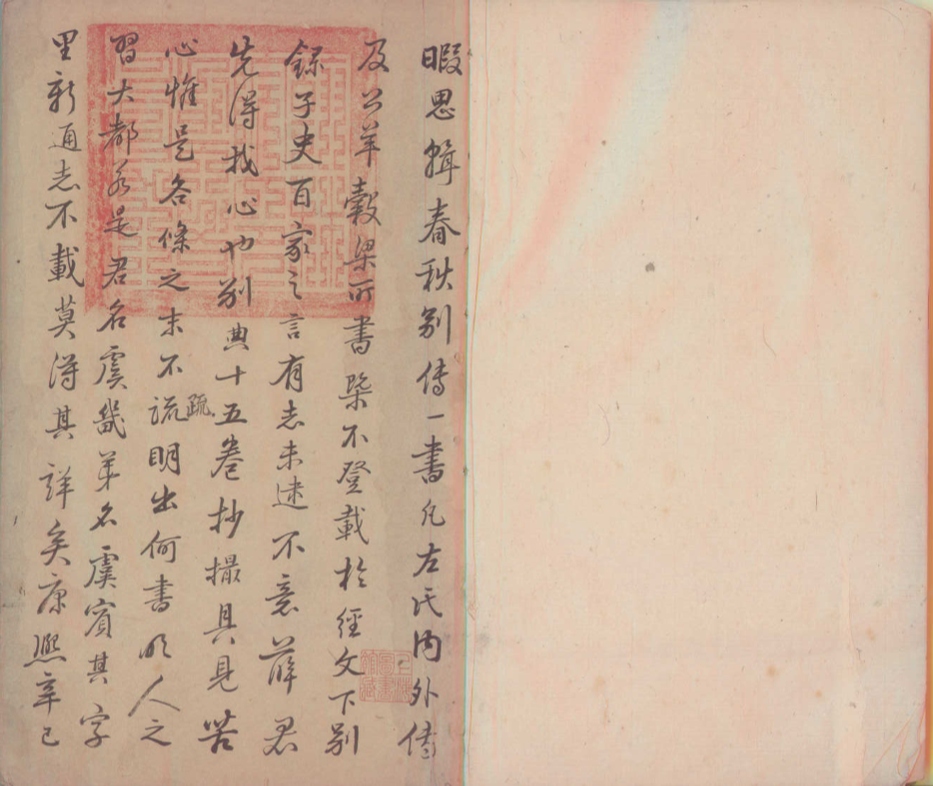 暇思輯春秋别傳一書凡左氏内外傳
及公羊穀梁所書槩不登載於經文下别
録子史百家之言有志未逮不意薛君
先得我心也别典十五卷抄撮具見苦
心惟是各條之末不疏明出何書明人之
習大都若是君名虞畿弟名虞賓其字
里新通志不載莫得其詳矣康熙辛巳